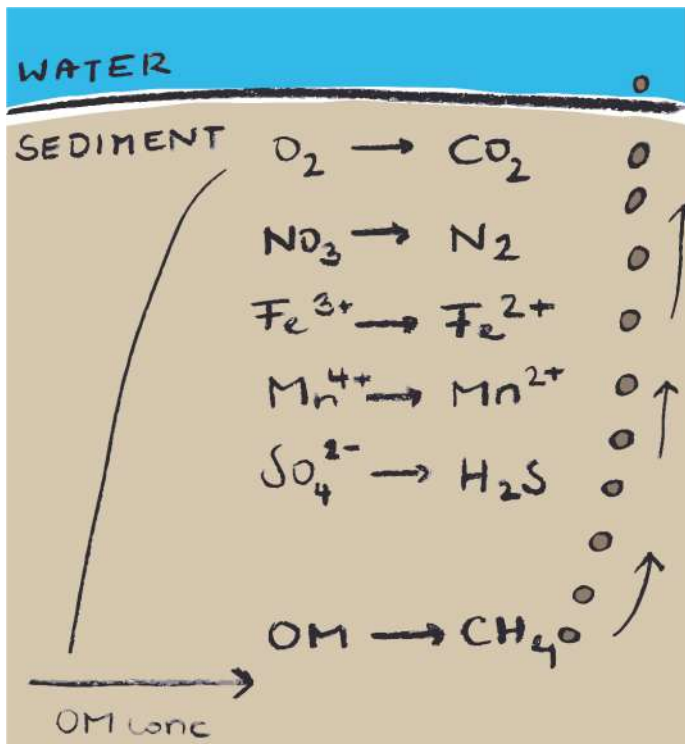 WATER
SEDIMENT
O₂ → CO₂
NO₃ → N₂
Fe³⁺ → Fe²⁺
Mn⁴⁺ → Mn²⁺
SO₄²⁻ → H₂S
OM → CH₄
OM conc